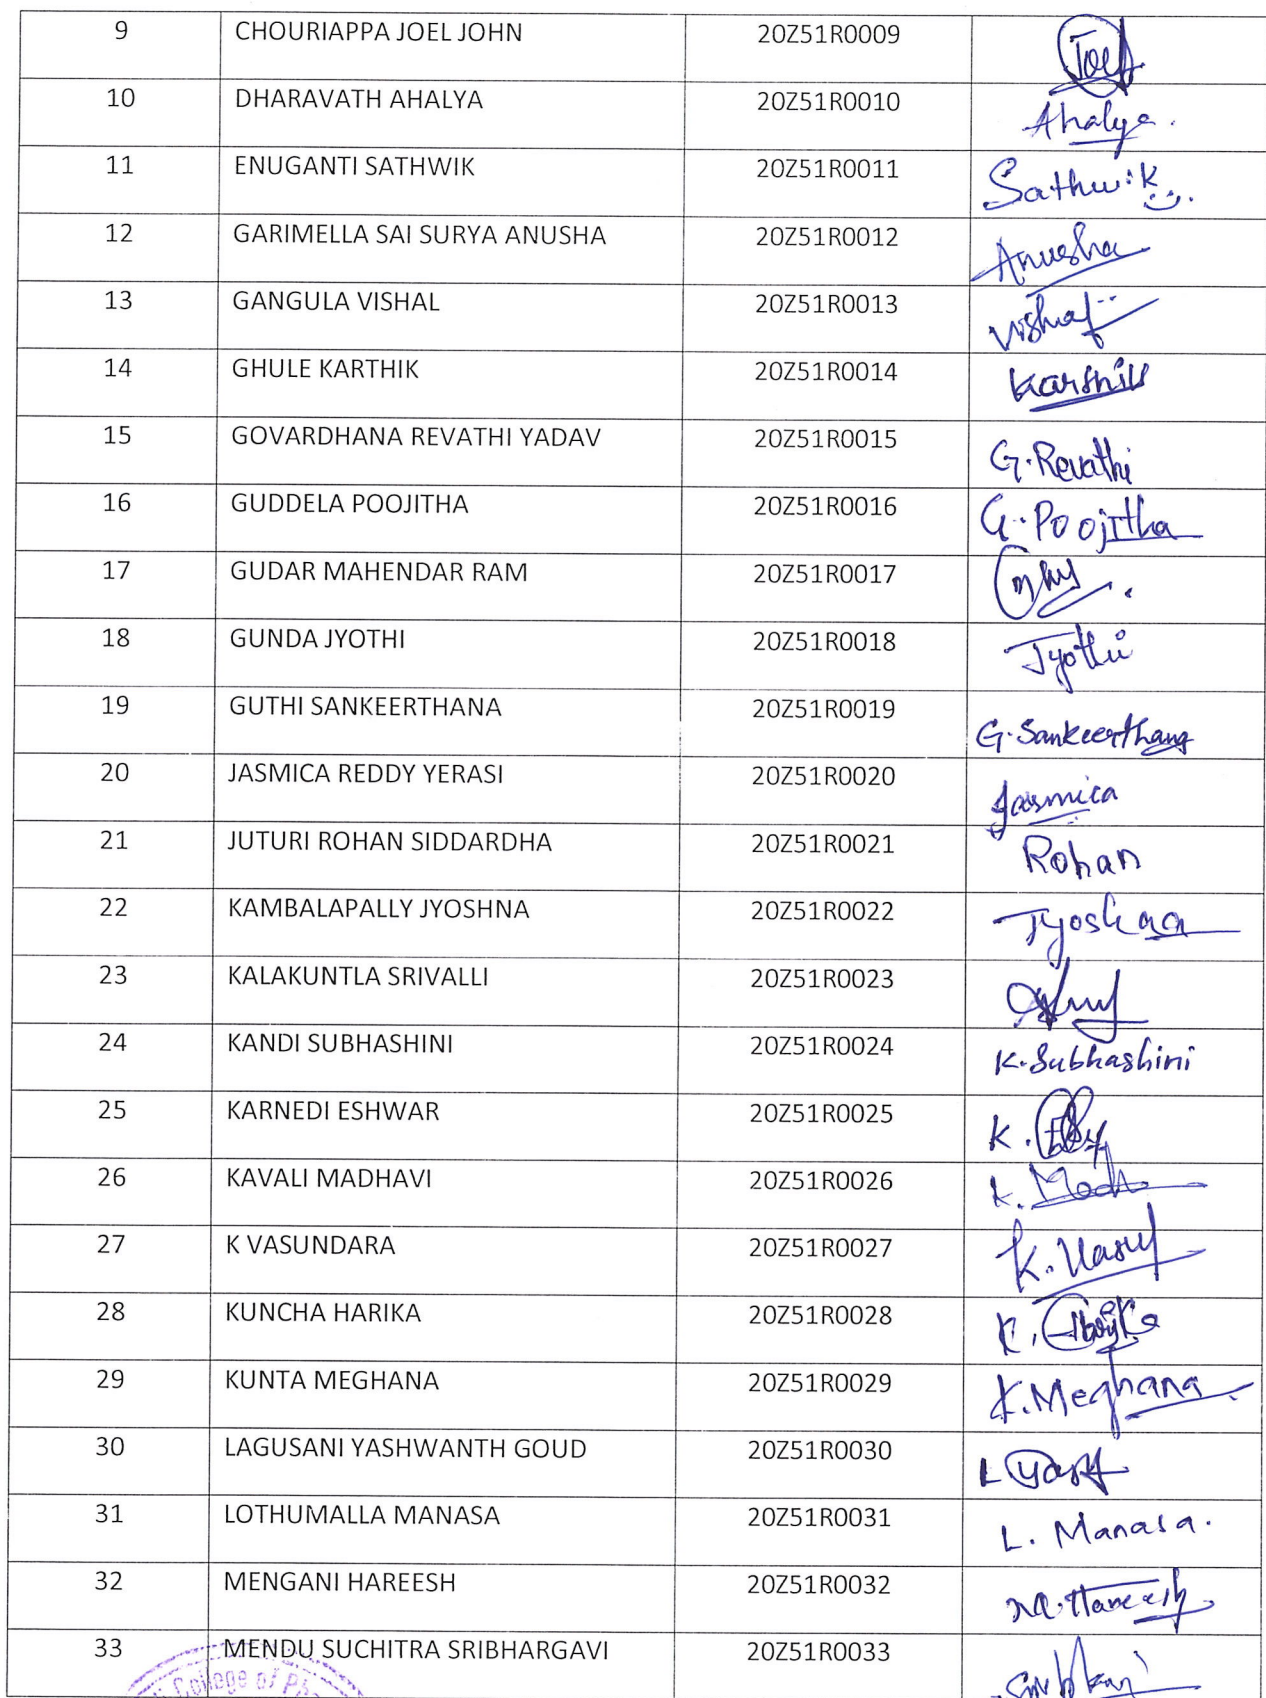 9 CHOURIAPPA JOEL JOHN 20Z51R0009 Joel
10 DHARAVATH AHALYA 20Z51R0010 Ahalya.
11 ENUGANTI SATHWIK 20Z51R0011 Sathwik
12 GARIMELLA SAI SURYA ANUSHA 20Z51R0012 Anusha
13 GANGULA VISHAL 20Z51R0013 Vishal
14 GHULE KARTHIK 20Z51R0014 Karthik
15 GOVARDHANA REVATHI YADAV 20Z51R0015 G.Revathi
16 GUDDELA POOJITHA 20Z51R0016 G.Poojitha
17 GUDAR MAHENDAR RAM 20Z51R0017
18 GUNDA JYOTHI 20Z51R0018 Jyothi
19 GUTHI SANKEERTHANA 20Z51R0019 G.Sankeerthana
20 JASMICA REDDY YERASI 20Z51R0020 Jasmica
21 JUTURI ROHAN SIDDARDHA 20Z51R0021 Rohan
22 KAMBALAPALLY JYOSHNA 20Z51R0022 Jyoshna
23 KALAKUNTLA SRIVALLI 20Z51R0023
24 KANDI SUBHASHINI 20Z51R0024 K.Subhashini
25 KARNEDI ESHWAR 20Z51R0025 K.
26 KAVALI MADHAVI 20Z51R0026 K.
27 K VASUNDARA 20Z51R0027 K.
28 KUNCHA HARIKA 20Z51R0028 K.
29 KUNTA MEGHANA 20Z51R0029 K.Meghana
30 LAGUSANI YASHWANTH GOUD 20Z51R0030 L
31 LOTHUMALLA MANASA 20Z51R0031 L. Manasa.
32 MENGANI HAREESH 20Z51R0032 M.Hareesh
33 MENDU SUCHITRA SRIBHARGAVI 20Z51R0033
College of